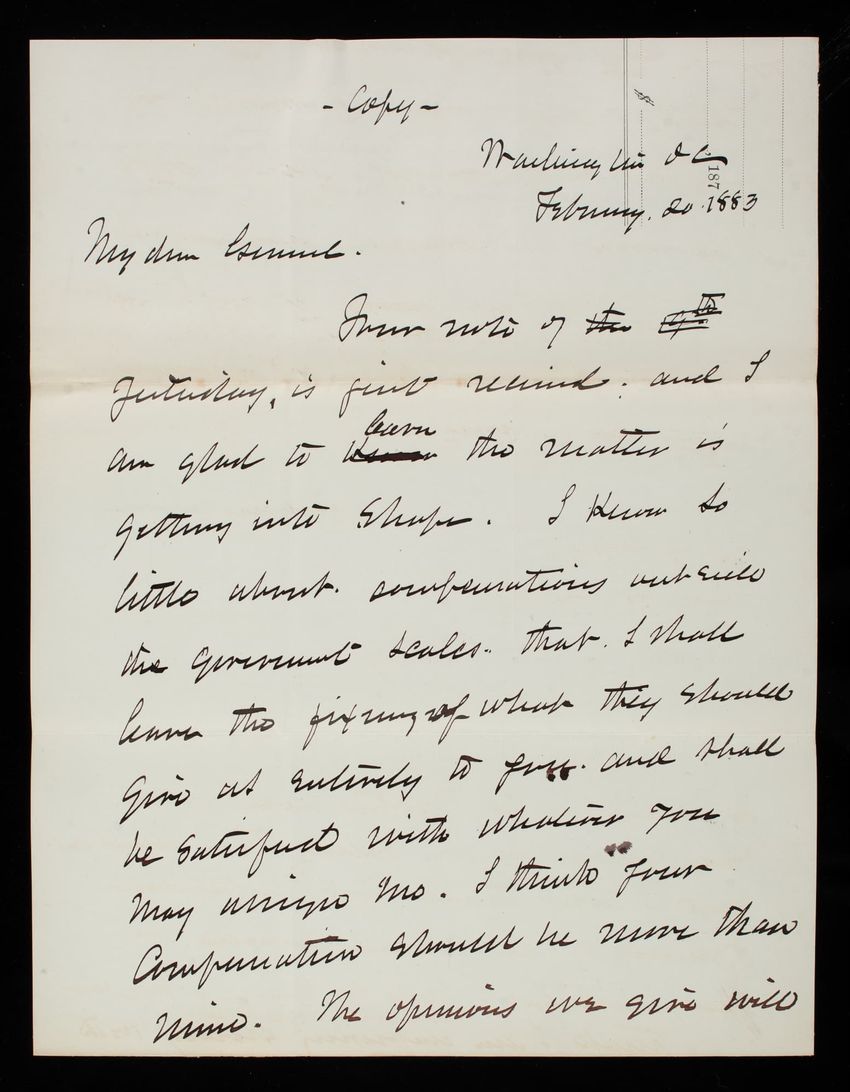 - Copy -
$
187
Washington D C
February. 20. 1883
My dear General.
Your note of the 19th
yesterday, is just received. and I
am glad to learn the matter is
getting into shape. I know so
little about. compensations outside
the government scales. that. I shall
leave the fixing of what they should
give us entirely to you. and shall
be satisfied with whatever you
may assign me. I think your
Compensation should be more than
mine. The opinions we give will